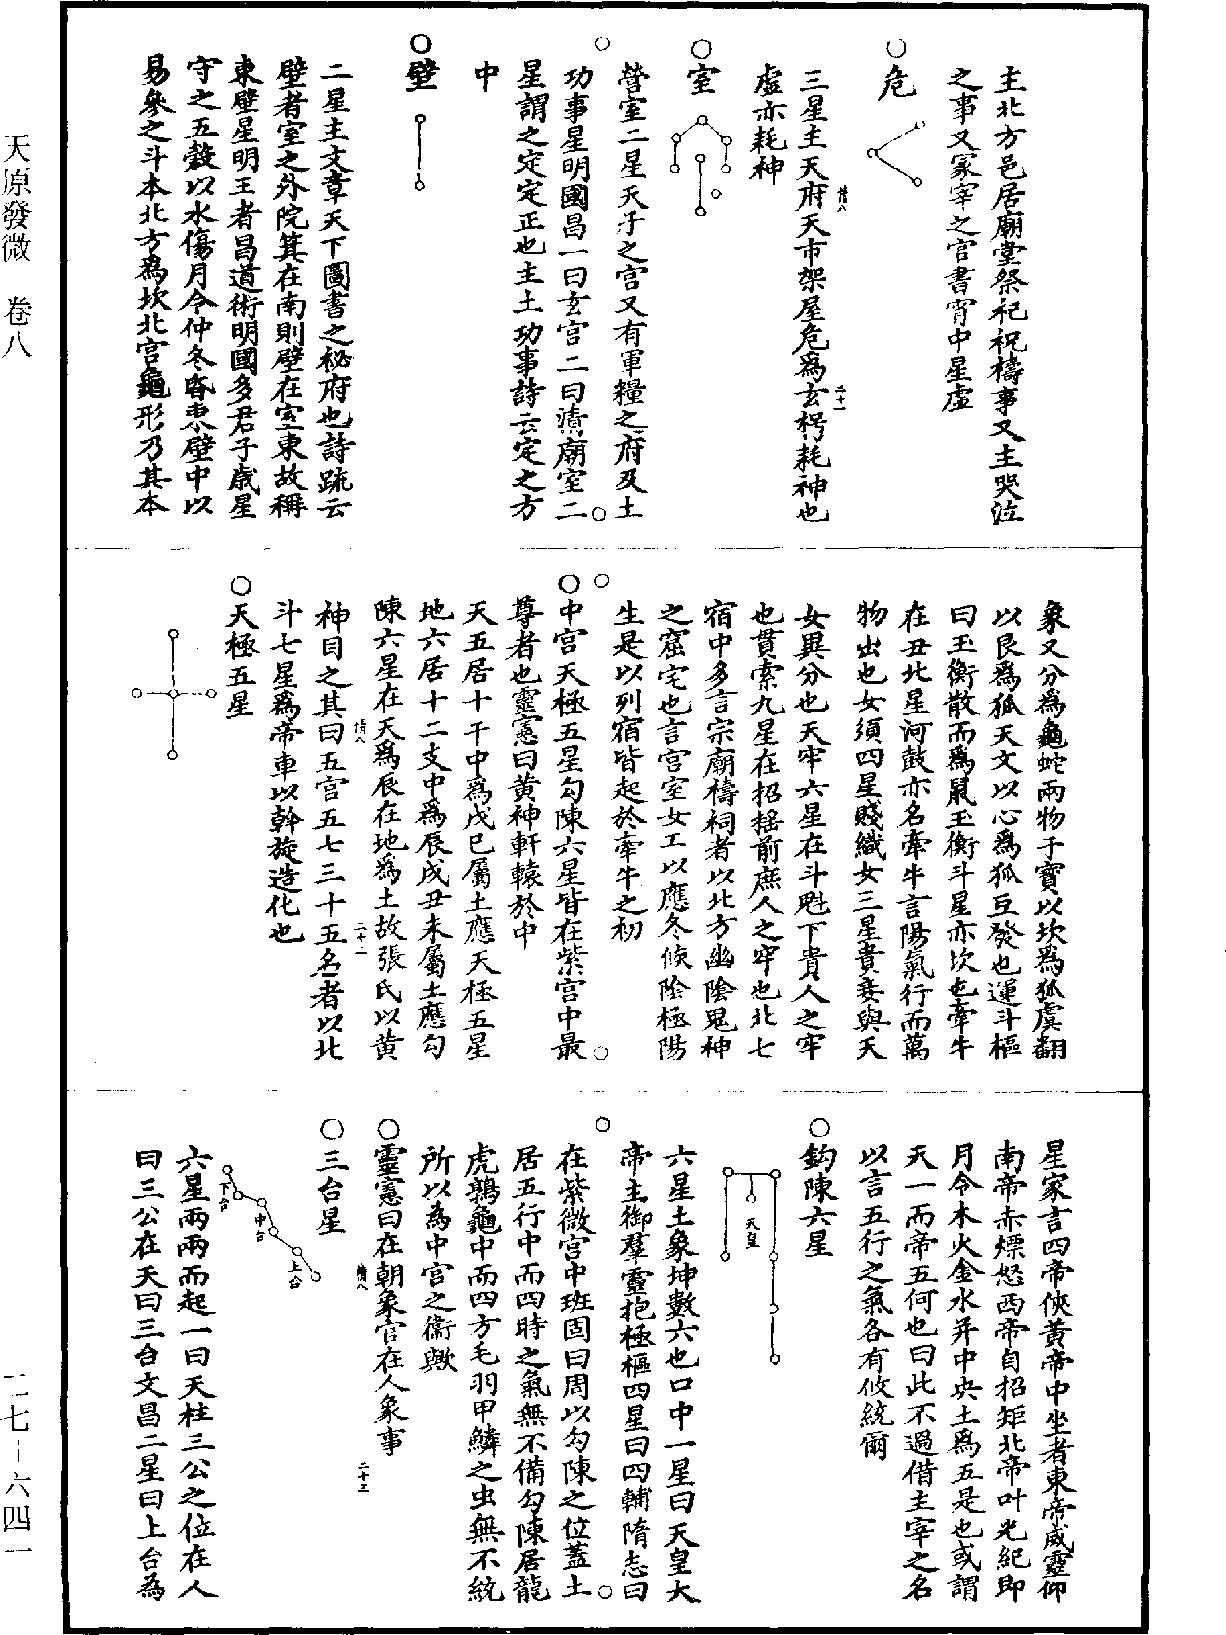 主北方邑居廟堂祭祀祝禱事又主哭泣
之事又冢宰之官書宵中星虛
○危
三星主天府天市架屋危爲玄枵耗神也
虛亦耗神
○室
營室二星天子之宮又有軍糧之府及土
功事星明國昌一曰玄宮二曰清廟室二
星謂之定定正也主土功事詩云定之方
中
○壁
二星主文章天下圖書之祕府也詩疏云
壁者室之外院箕在南則壁在室東故稱
東壁星明王者昌道術明國多君子歲星
守之五穀以水傷月令仲冬昏東壁中以
易參之斗本北方爲坎北宮龜形乃其本
象又分爲龜蛇兩物干寶以坎爲狐虞翻
以艮爲狐天文以心爲狐互發也運斗樞
曰玉衡散而爲鼠玉衡斗星亦坎也牽牛
在丑北星河鼓亦名牽牛言陽氣行而萬
物出也女須四星賤織女三星貴妾與天
女異分也天牢六星在斗魁下貴人之牢
也貫索九星在招搖前庶人之牢也北七
宿中多言宗廟禱祠者以北方幽陰鬼神
之窟宅也言宮室女工以應冬候陰極陽
生是以列宿皆起於牽牛之初
○中宮天極五星勾陳六星皆在紫宮中最
尊者也靈憲曰黃神軒轅於中
天五居十干中爲戊己屬土應天極五星
地六居十二支中爲辰戌丑未屬土應勾
陳六星在天爲辰在地爲土故張氏以黃
神目之其曰五宮五七三十五名者以北
斗七星爲帝車以斡旋造化也
○天極五星
星家言四帝俠黃帝中坐者東帝威靈仰
南帝赤熛怒西帝白招矩北帝叶光紀即
月令木火金水并中央土爲五是也或謂
天一而帝五何也曰此不過借主宰之名
以言五行之氣各有攸統爾
○鈎陳六星
天皇
六星土象坤數六也口中一星曰天皇大
帝主御羣靈抱極樞四星曰四輔隋志曰
在紫微宮中班固曰周以勾陳之位蓋土
居五行中而四時之氣無不備勾陳居龍
虎鶉龜中而四方毛羽甲鱗之虫無不統
所以為中宮之衞歟
○靈憲曰在朝象官在人象事
○三台星
上台
中台
下台
六星兩兩而起一曰天柱三公之位在人
曰三公在天曰三台文昌二星曰上台為
天原發微　卷八
二七－六四一